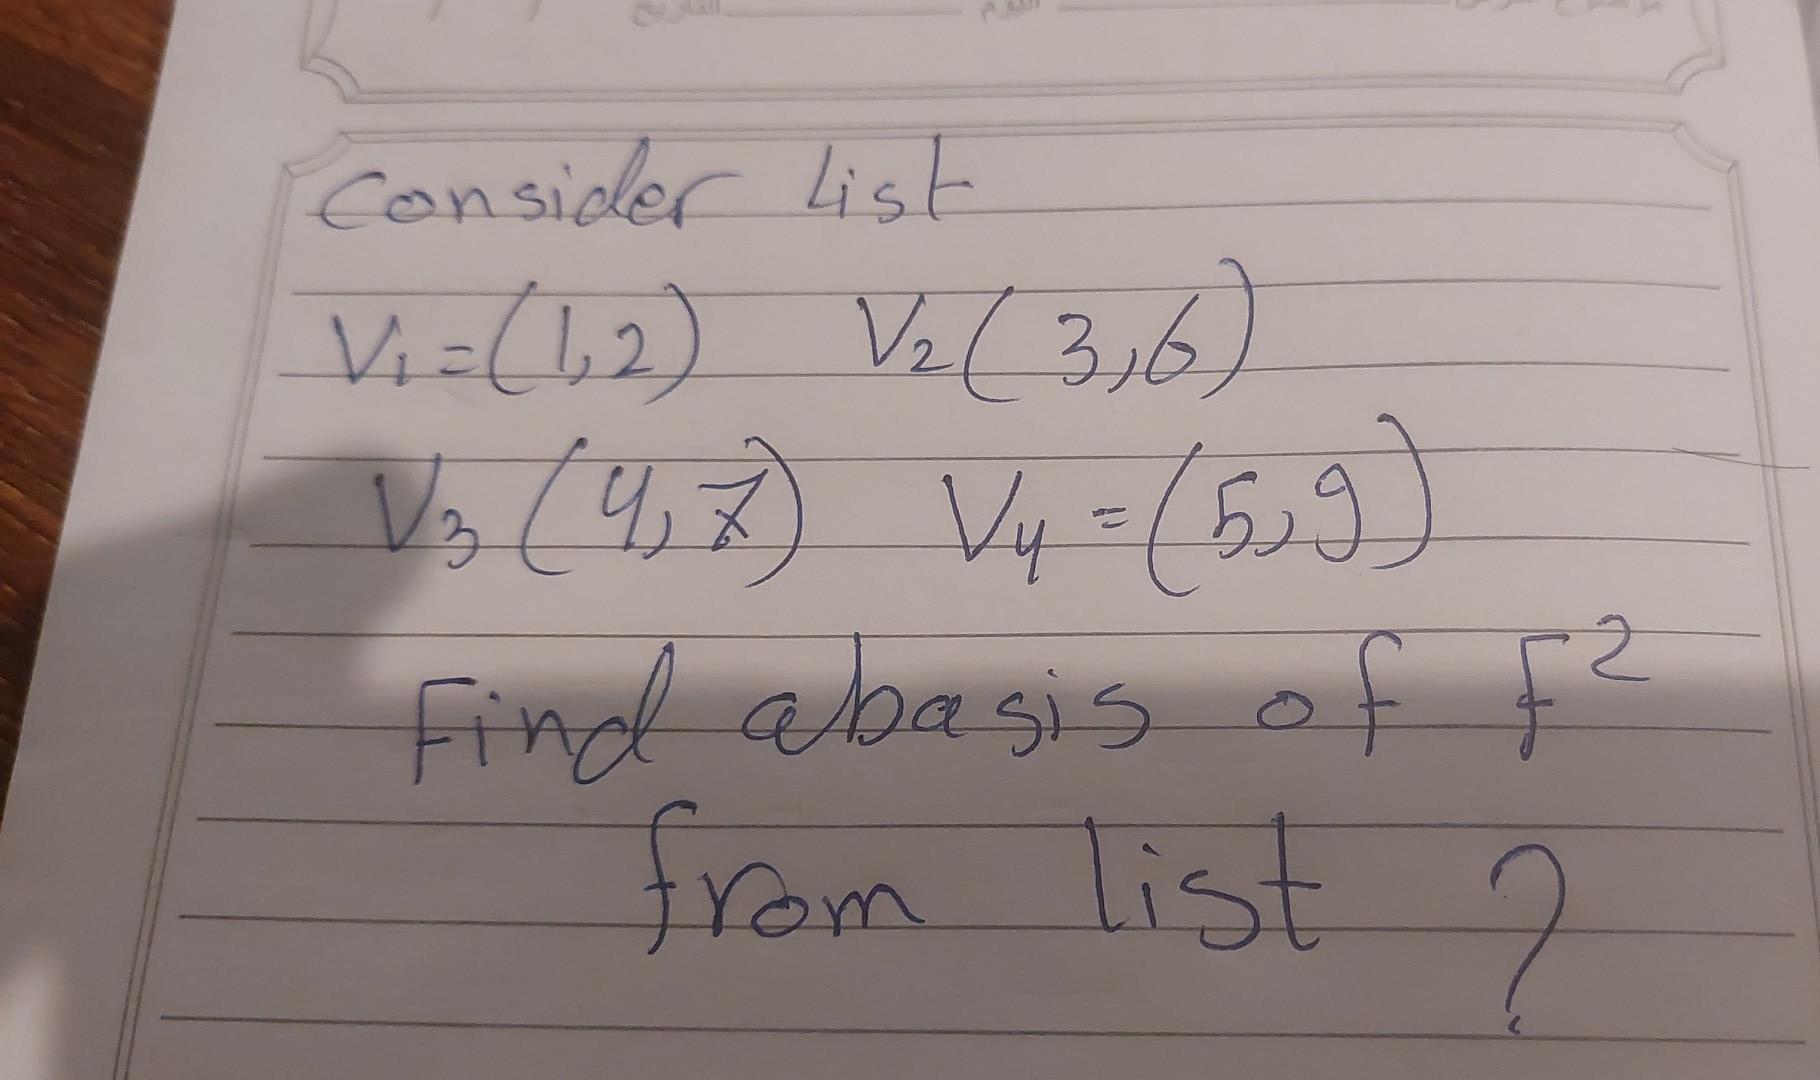 التاريخ اليوم
Consider List
V₁ = (1,2) V₂ ( 3,6)
V₃ (4,7) V₄ = (5,9)
Find abasis of F²
from list ?